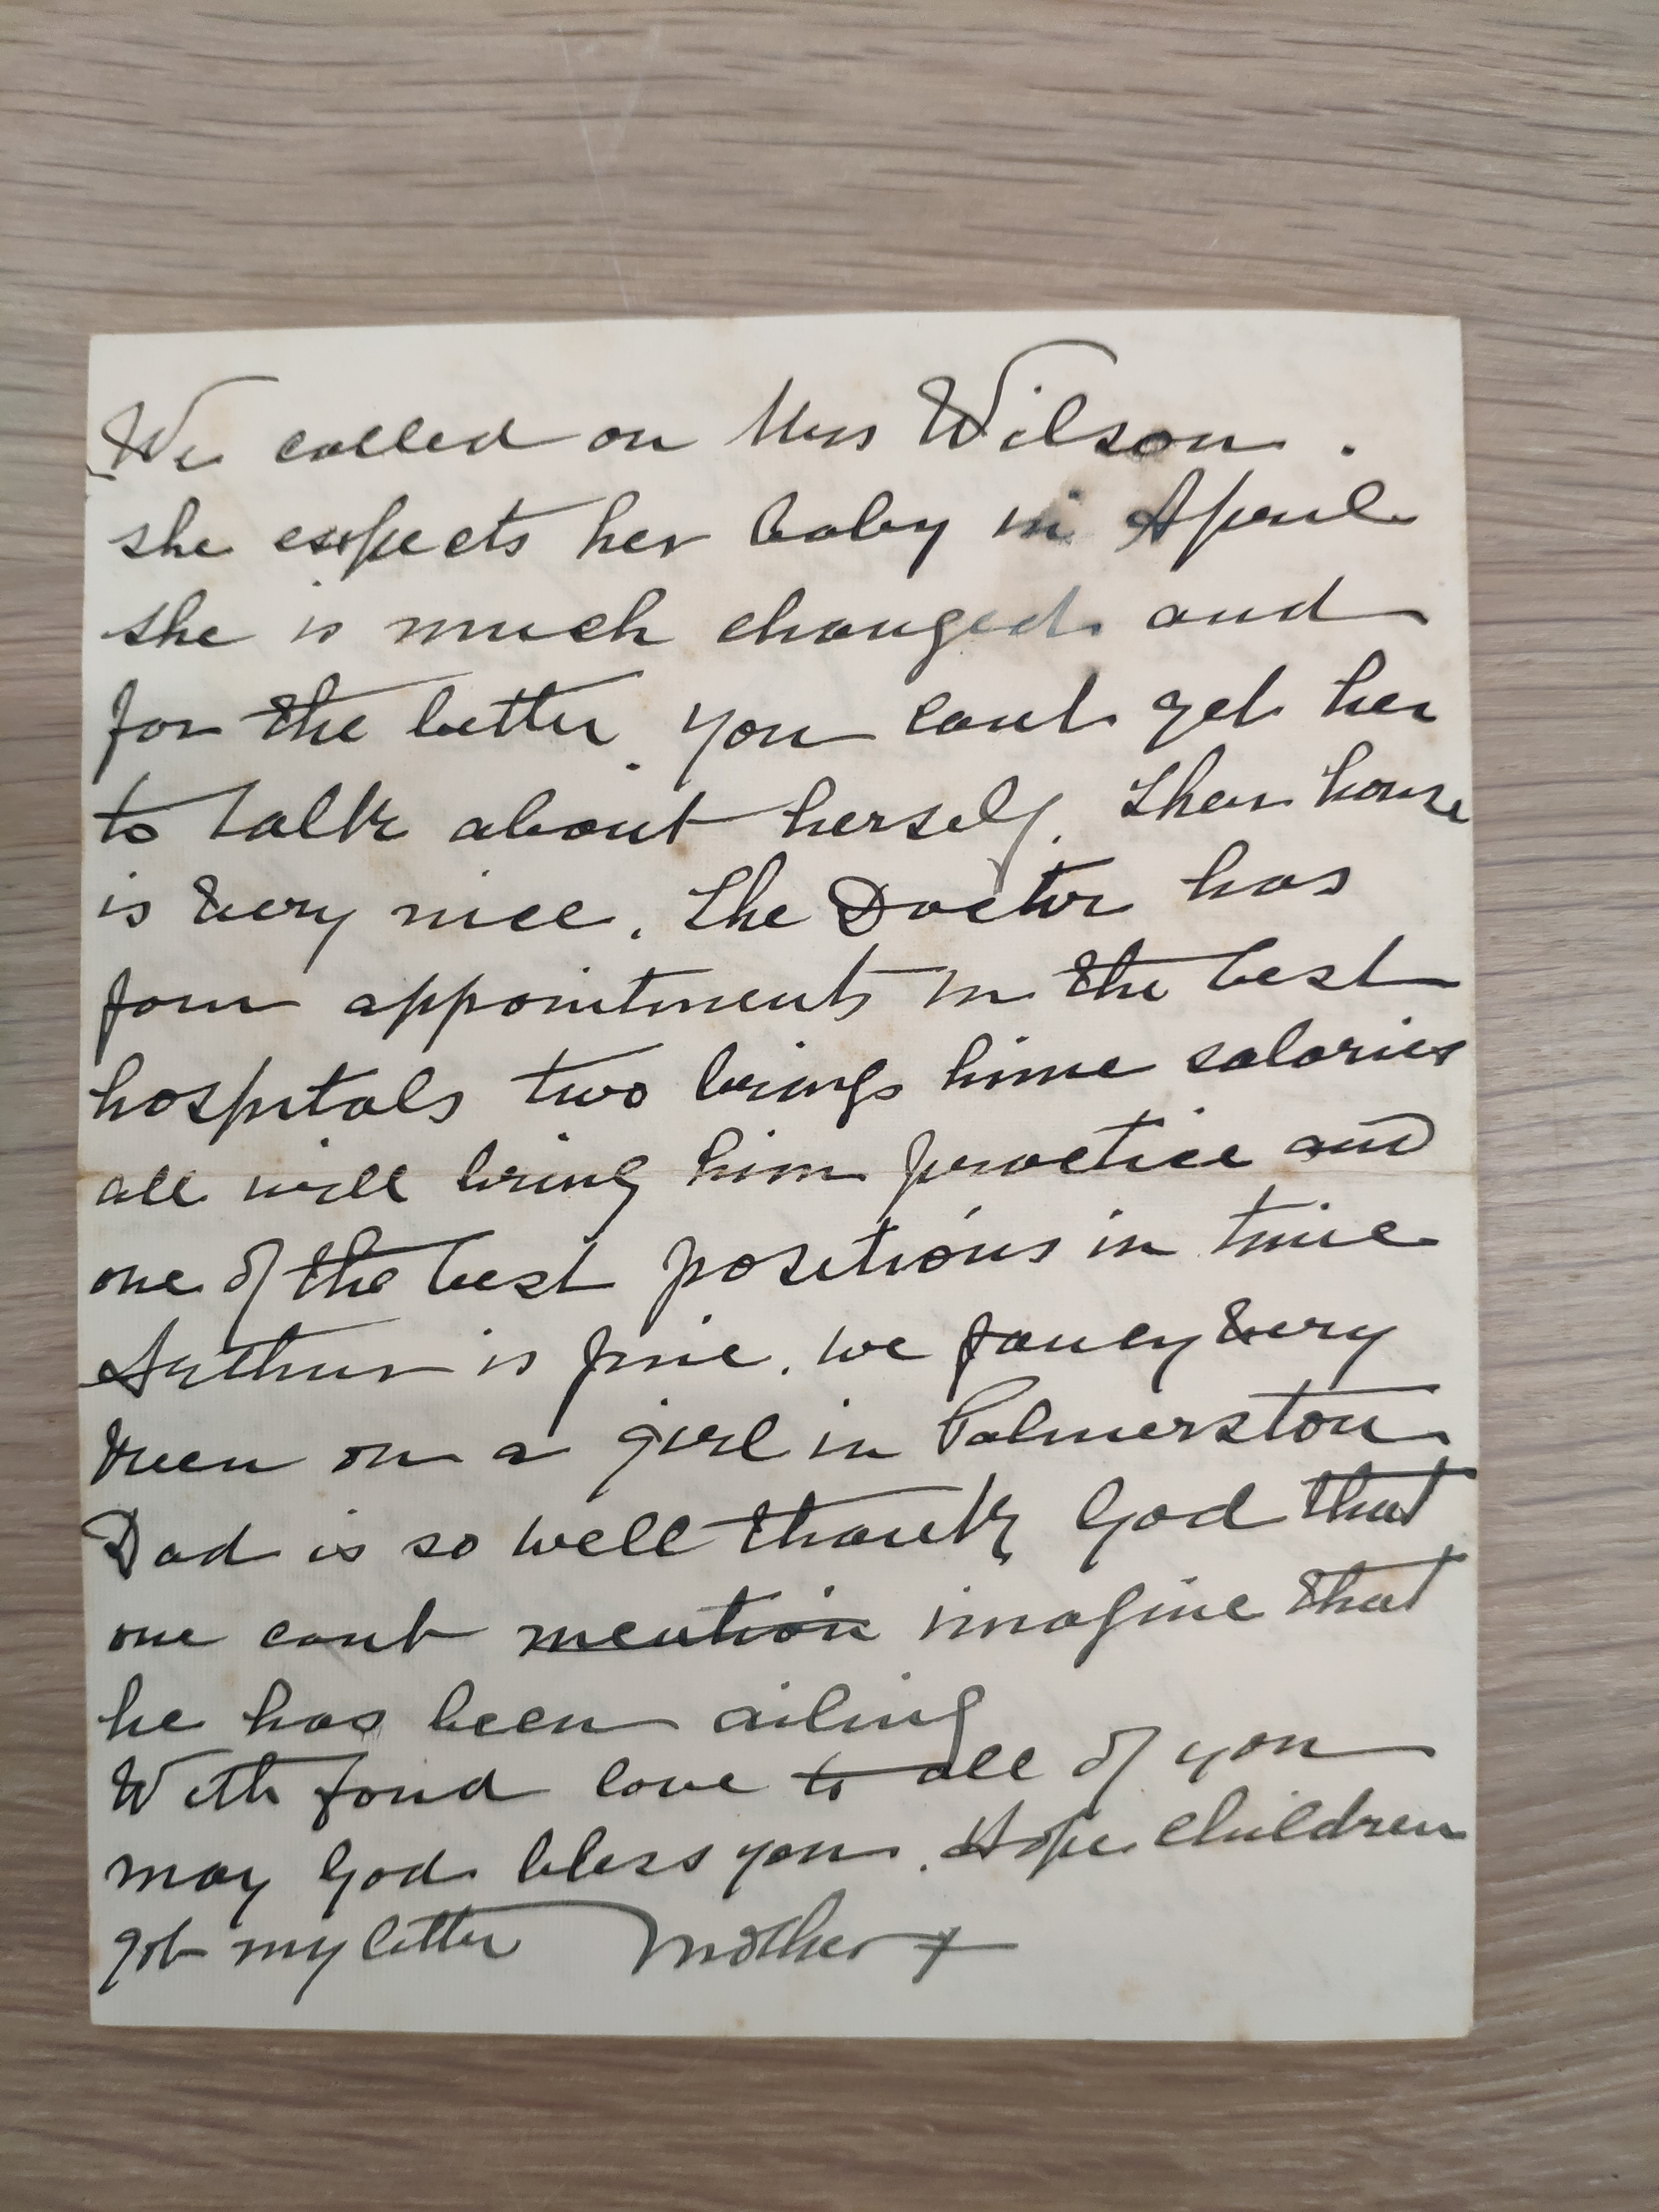 We called on Mrs Wilson.
she expects her baby in April
she is much changed and
for the better. you cant get her
to talk about herself. Their house
is very nice. The Doctor has
four appointments in the best
hospitals two brings hime salaries
all will bring him practice and
one of the best positions in time
Arthur is fine. we fancy very
keen on a girl in Palmerston.
Dad is so well thank God that
one cant mention imagine that
he has been ailing
With fond love to all of you
may God bless you. Hope children
got my letter Mother x